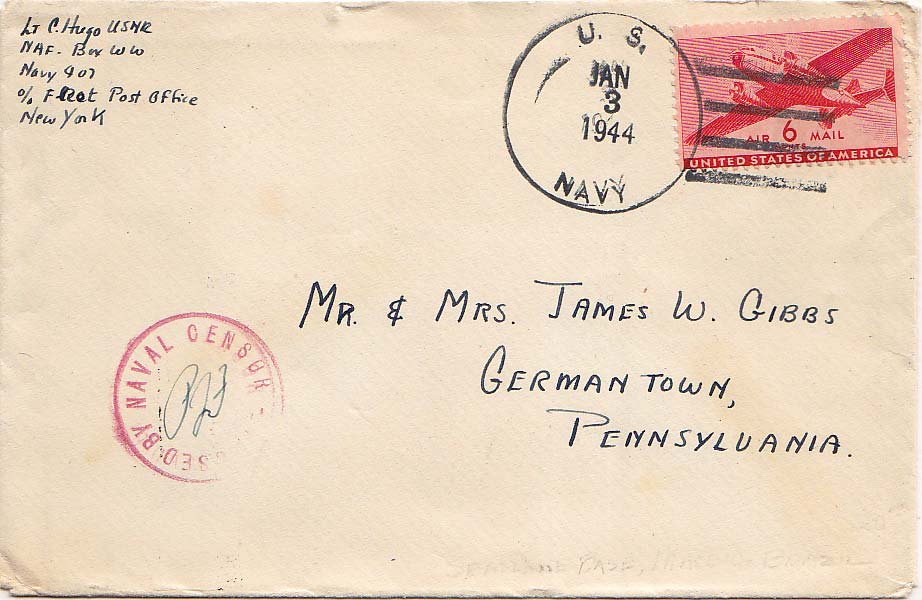 Lt C. Hugo USNR
NAF. Box WW
Navy 407
c/o Fleet Post Office
New York
U. S.
JAN
3
1944
NAVY
AIR 6 MAIL
CENTS
UNITED STATES OF AMERICA
MR. & MRS. JAMES W. GIBBS
GERMANTOWN,
PENNSYLVANIA.
PASSED BY NAVAL CENSOR
SEAPLANE BASE, BRAZIL